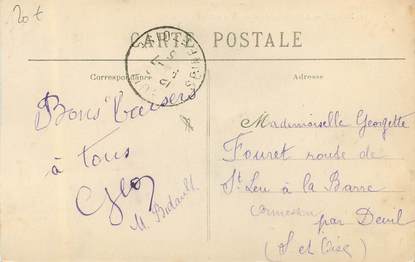 20+
CARTE POSTALE
Correspondance
Adresse
Bons baisers
à tous
M. Badault
Mademoiselle Georgette
Fouret route de
St Leu à la Barre
par Deuil
(S et Oise)